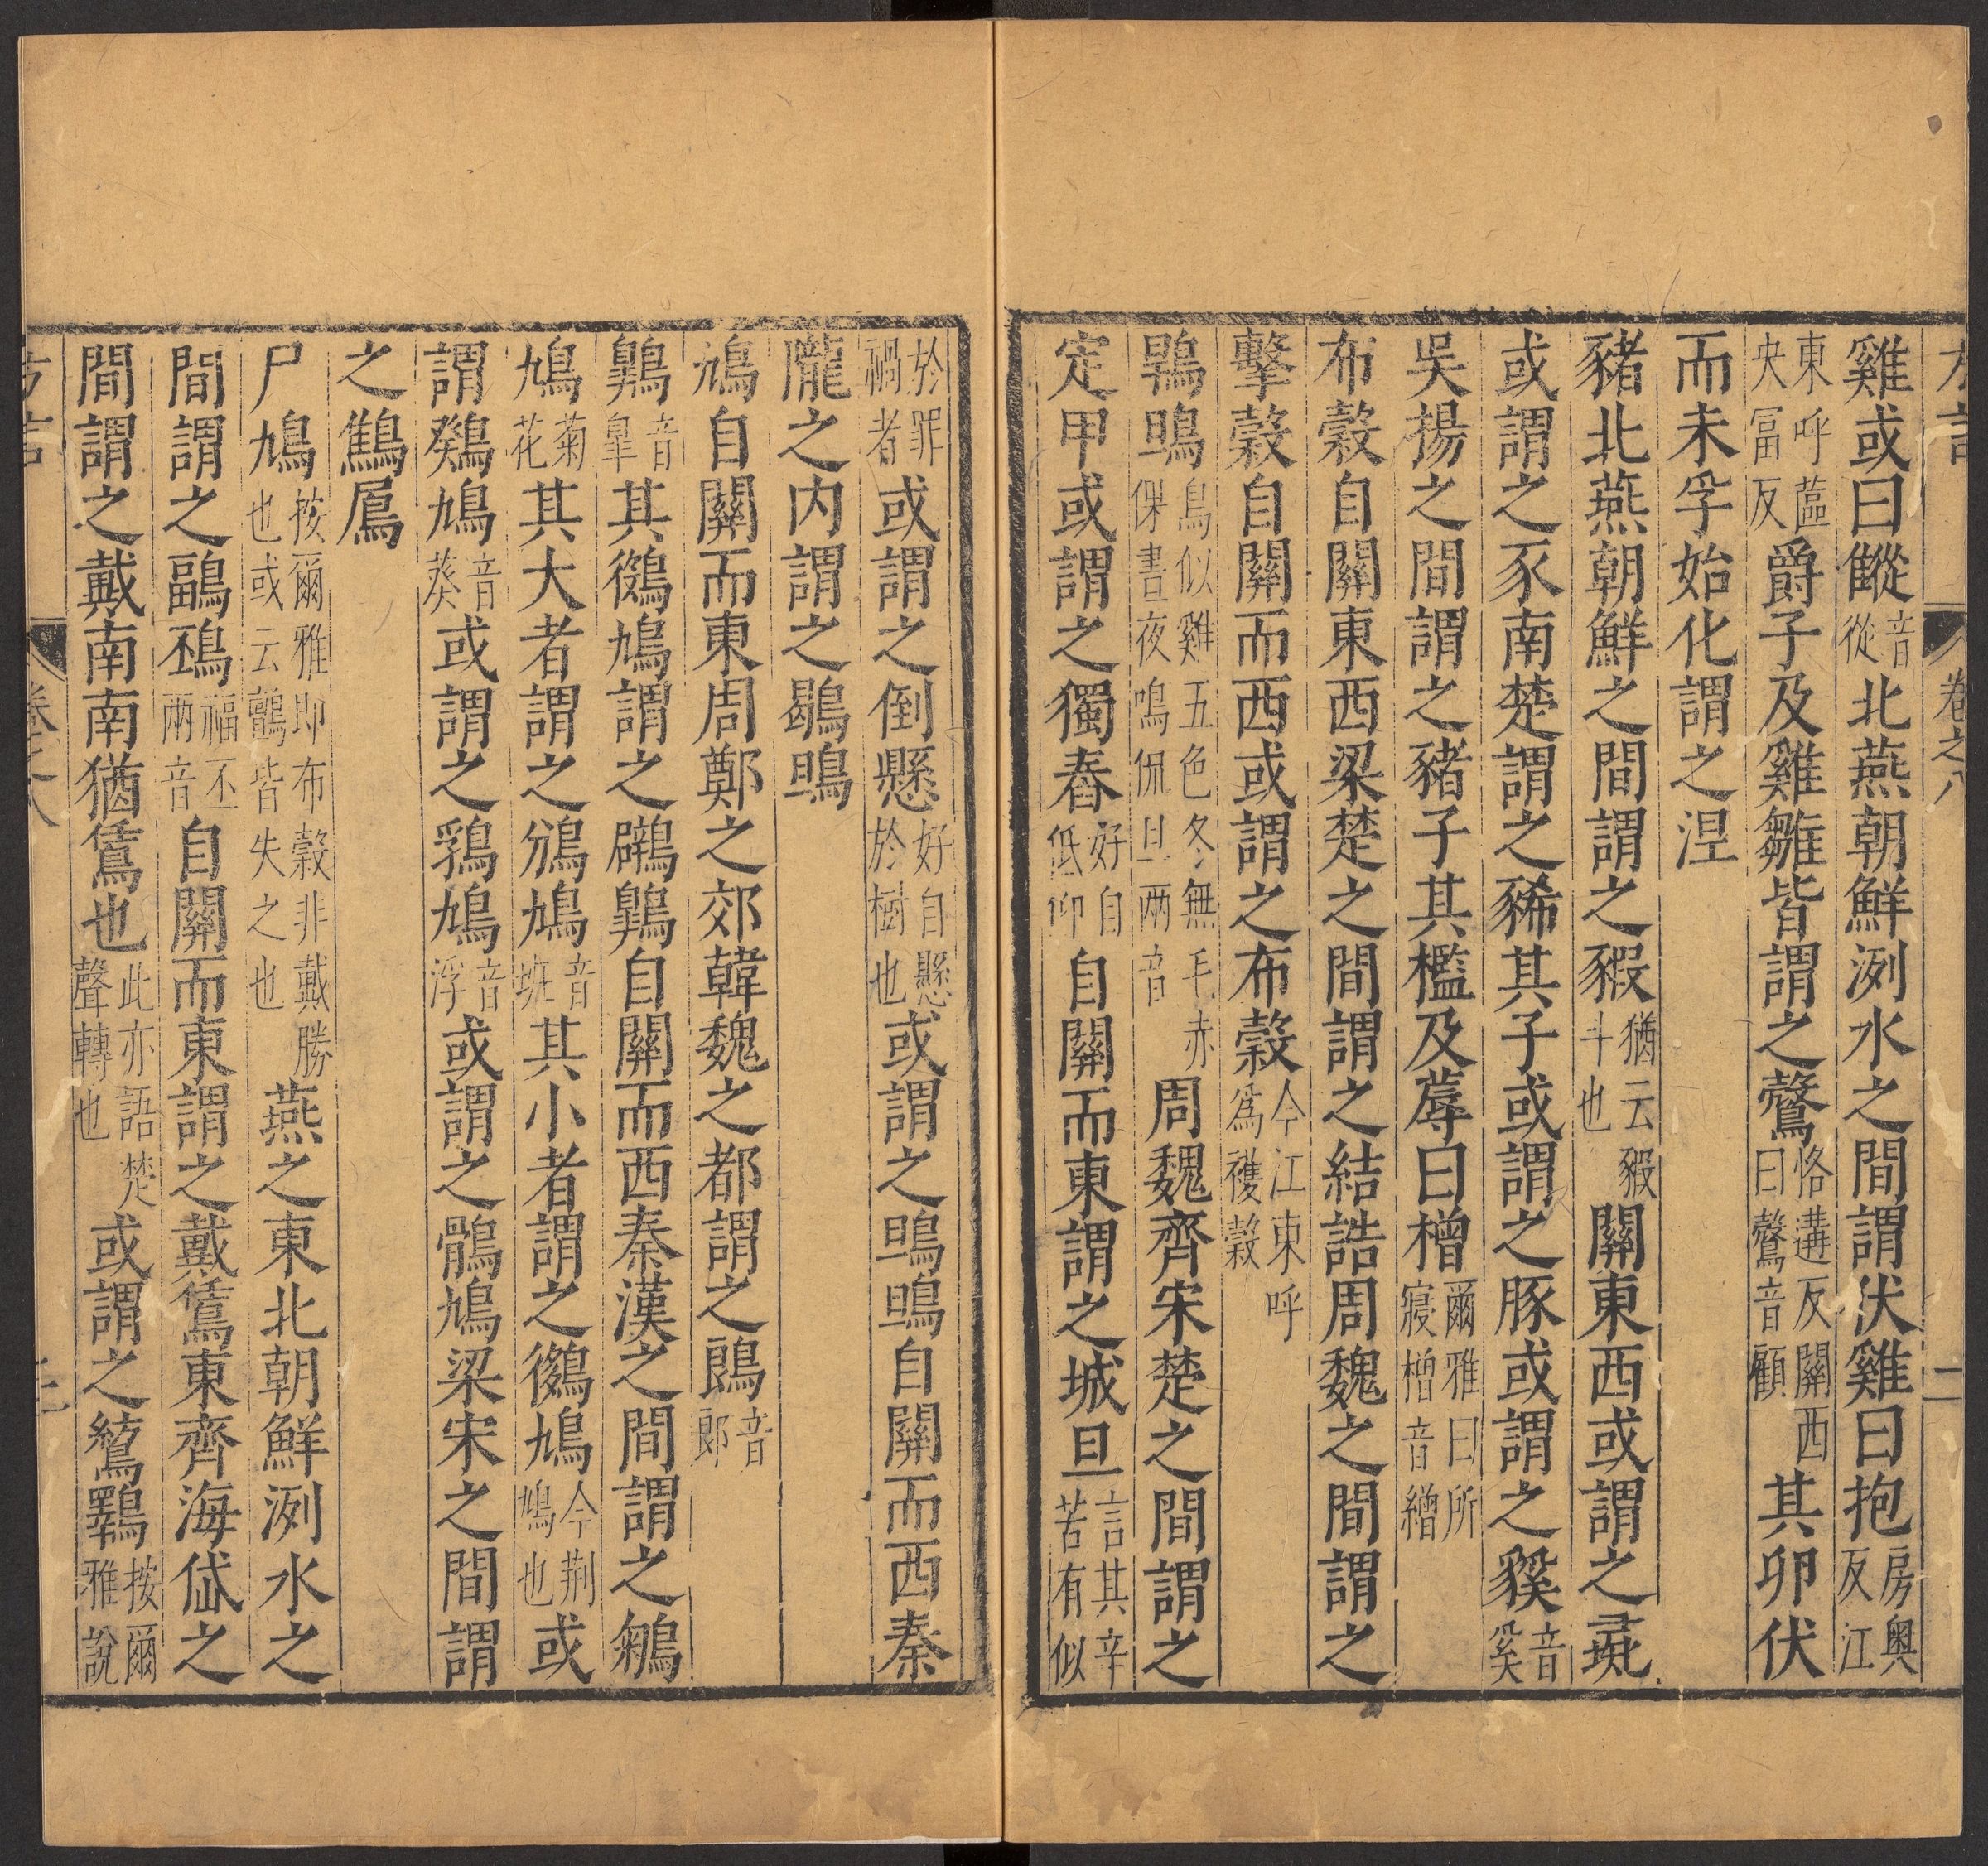 卷之八 二
雞或曰音從北燕朝鮮洌水之間謂伏雞曰抱房奧反江
東呼蓲央富反爵子及雞雛皆謂之鷇恪遘反關西曰鷇音顧其卵伏
而未孚始化謂之涅
豬北燕朝鮮之間謂之豭猶云豭斗也關東西或謂之彘
或謂之豕南楚謂之豨其子或謂之豚或謂之貕音奚
吳揚之間謂之豬子其檻及蓐曰橧爾雅曰所寢橧音繒
布穀自關東西梁楚之間謂之結誥周魏之間謂之
擊穀自關而西或謂之布穀今江東呼為穫穀
鶡鴠鳥似雞五色冬無毛赤倮晝夜鳴侃旦兩音周魏齊宋楚之間謂之
定甲或謂之獨舂好自低仰自關而東謂之城旦言其辛苦有似
於罪禍者或謂之倒懸好自懸於樹也或謂之鴠鴠自關而西秦
隴之內謂之鶡鴠
鳩自關而東周鄭之郊韓魏之都謂之音郎
鷱音皐其鳩謂之鸊鷱自關而西秦漢之間謂之鵴
鳩菊花其大者謂之鳻鳩音班其小者謂之鳩今荊鳩也或
謂鳩音葵或謂之䳕鳩音浮或謂之鶻鳩梁宋之間謂
之鳸
尸鳩按爾雅即布穀非戴勝也或云鸇皆失之也燕之東北朝鮮洌水之
間謂之鶝䲹福丕兩音自關而東謂之戴鵀東齊海岱之
間謂之戴南南猶鵀也此亦語楚聲轉也或謂之按爾雅說
方言 卷之八